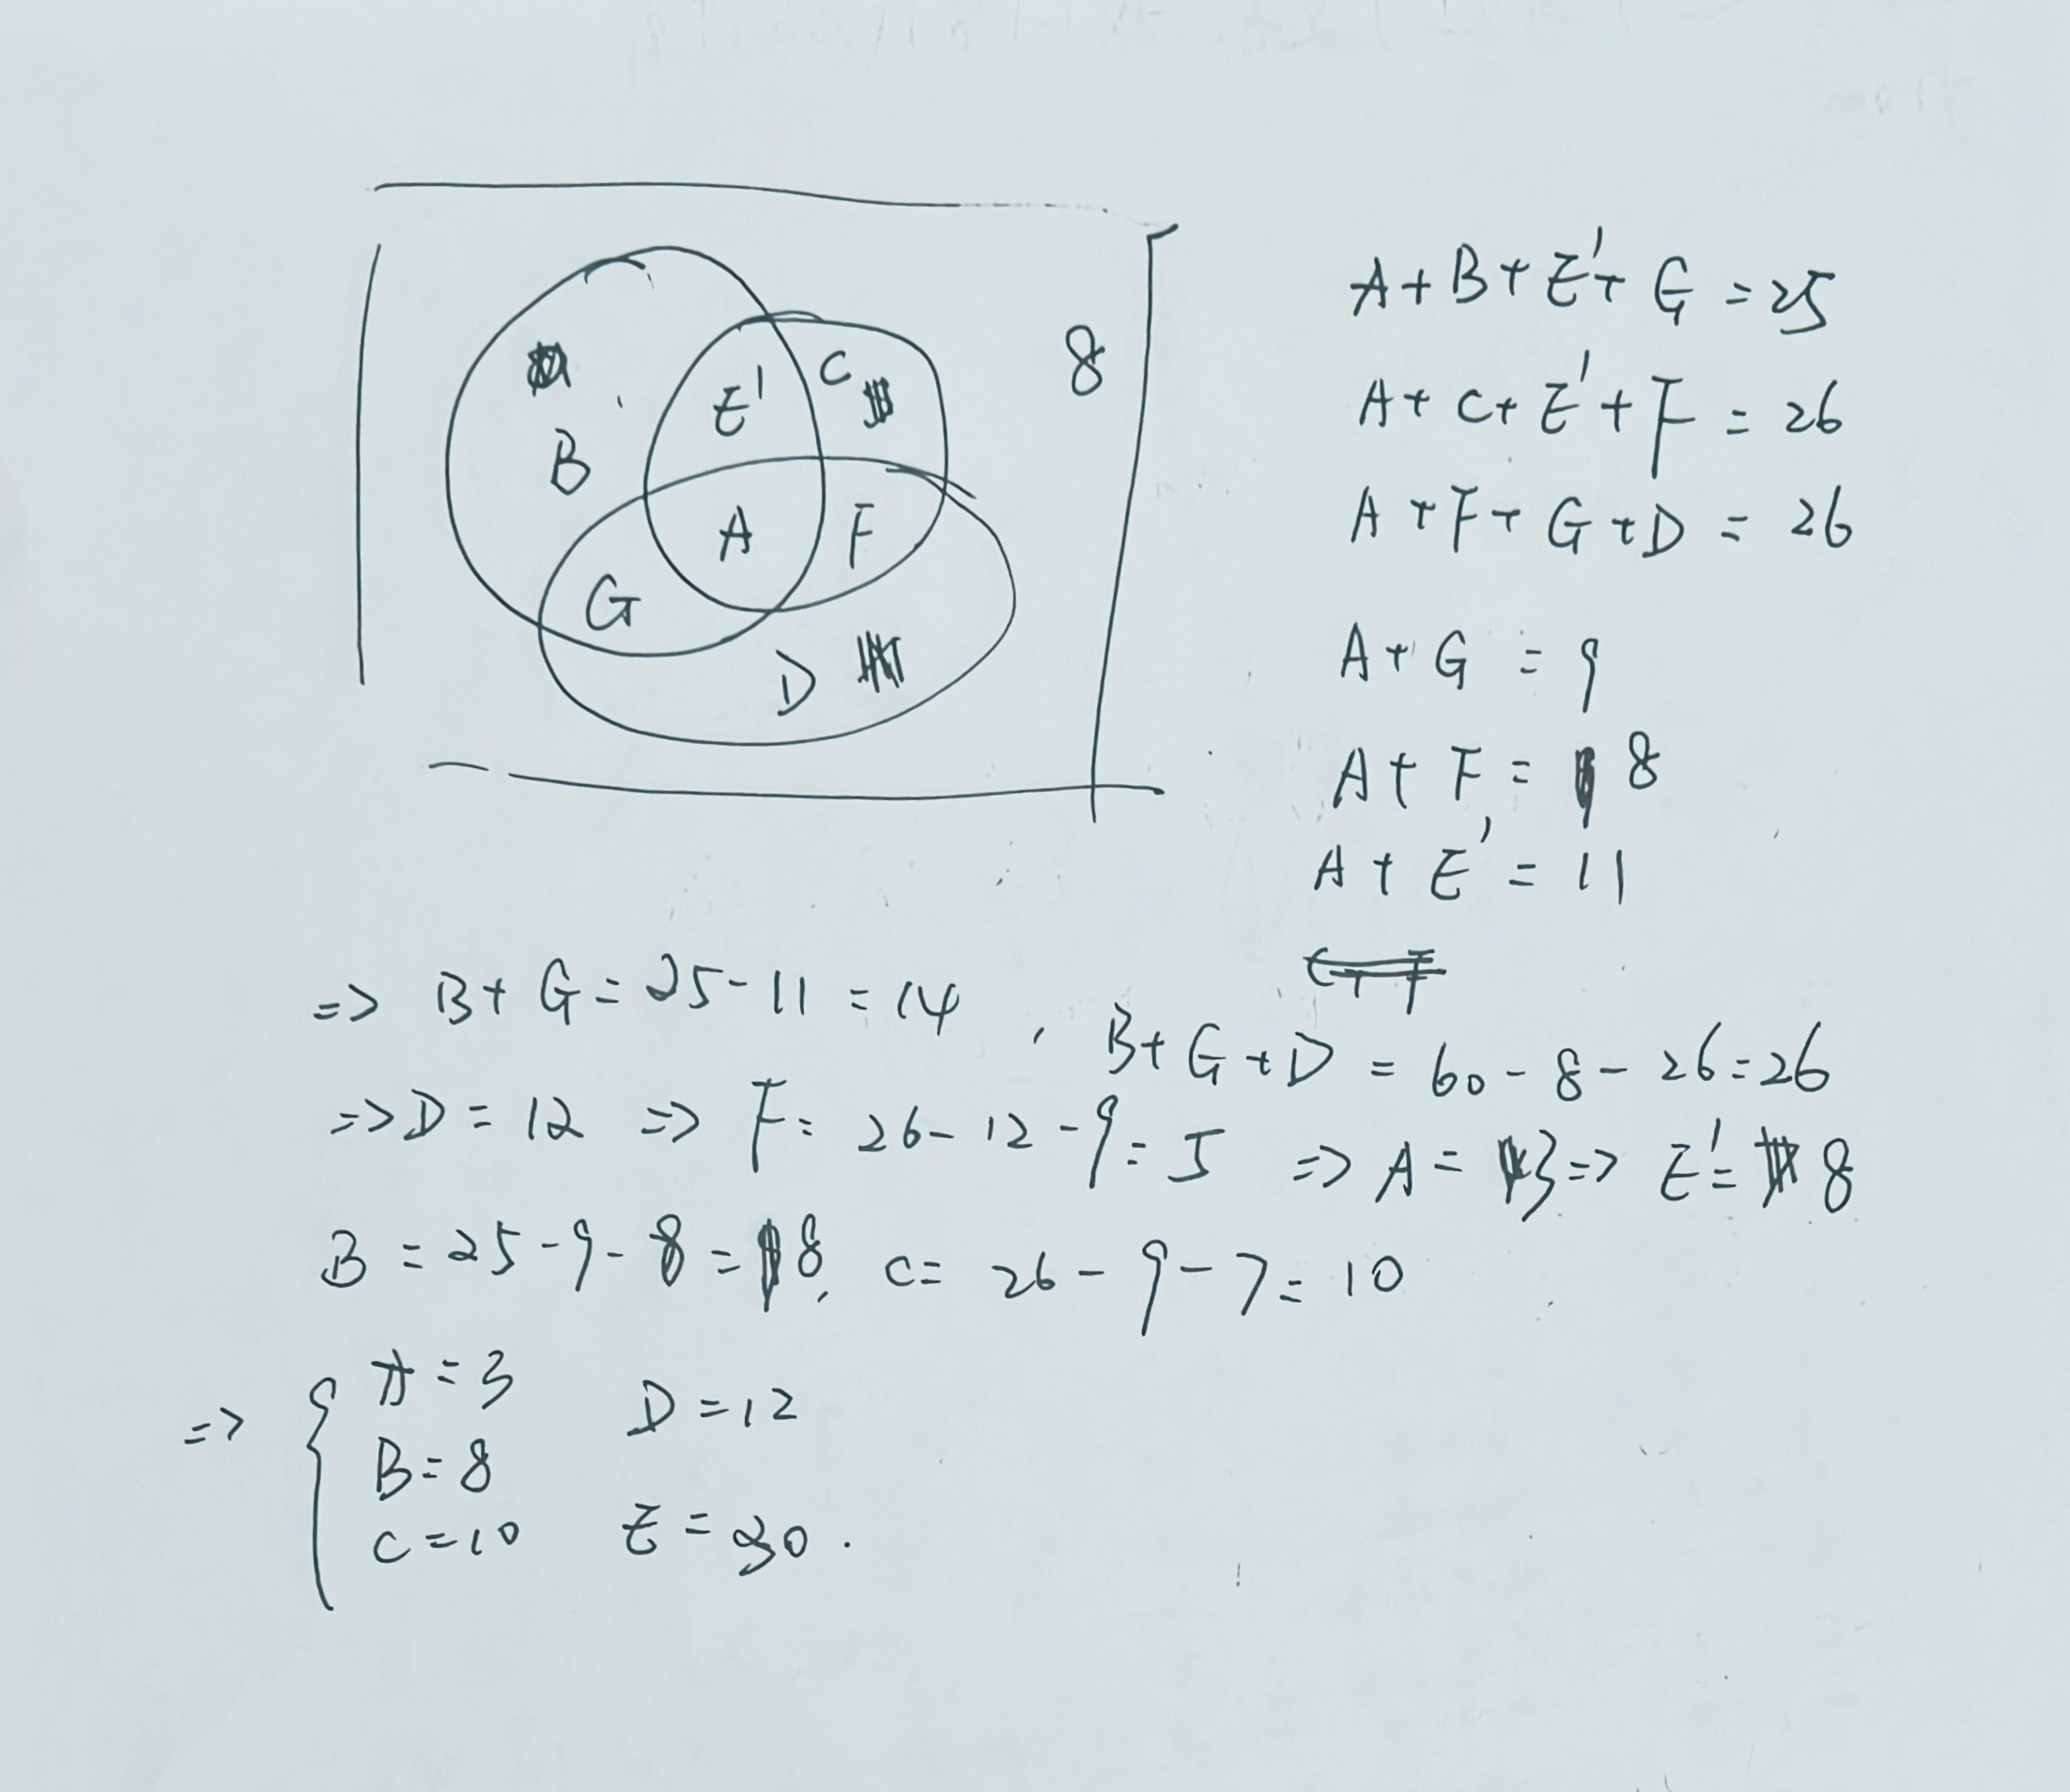 B
E'
C
8
A
F
G
D
A+B+E'+G=25
A+C+E'+F=26
A+F+G+D=26
A+G=9
A+F=8
A+E'=11
=> B+G=25-11=14, B+G+D=60-8-26=26
=> D=12 => F=26-12-9=5 => A=3 => E'=8
B=25-9-8=8, C=26-9-7=10
=> { A=3 D=12
B=8
C=10 E=30.